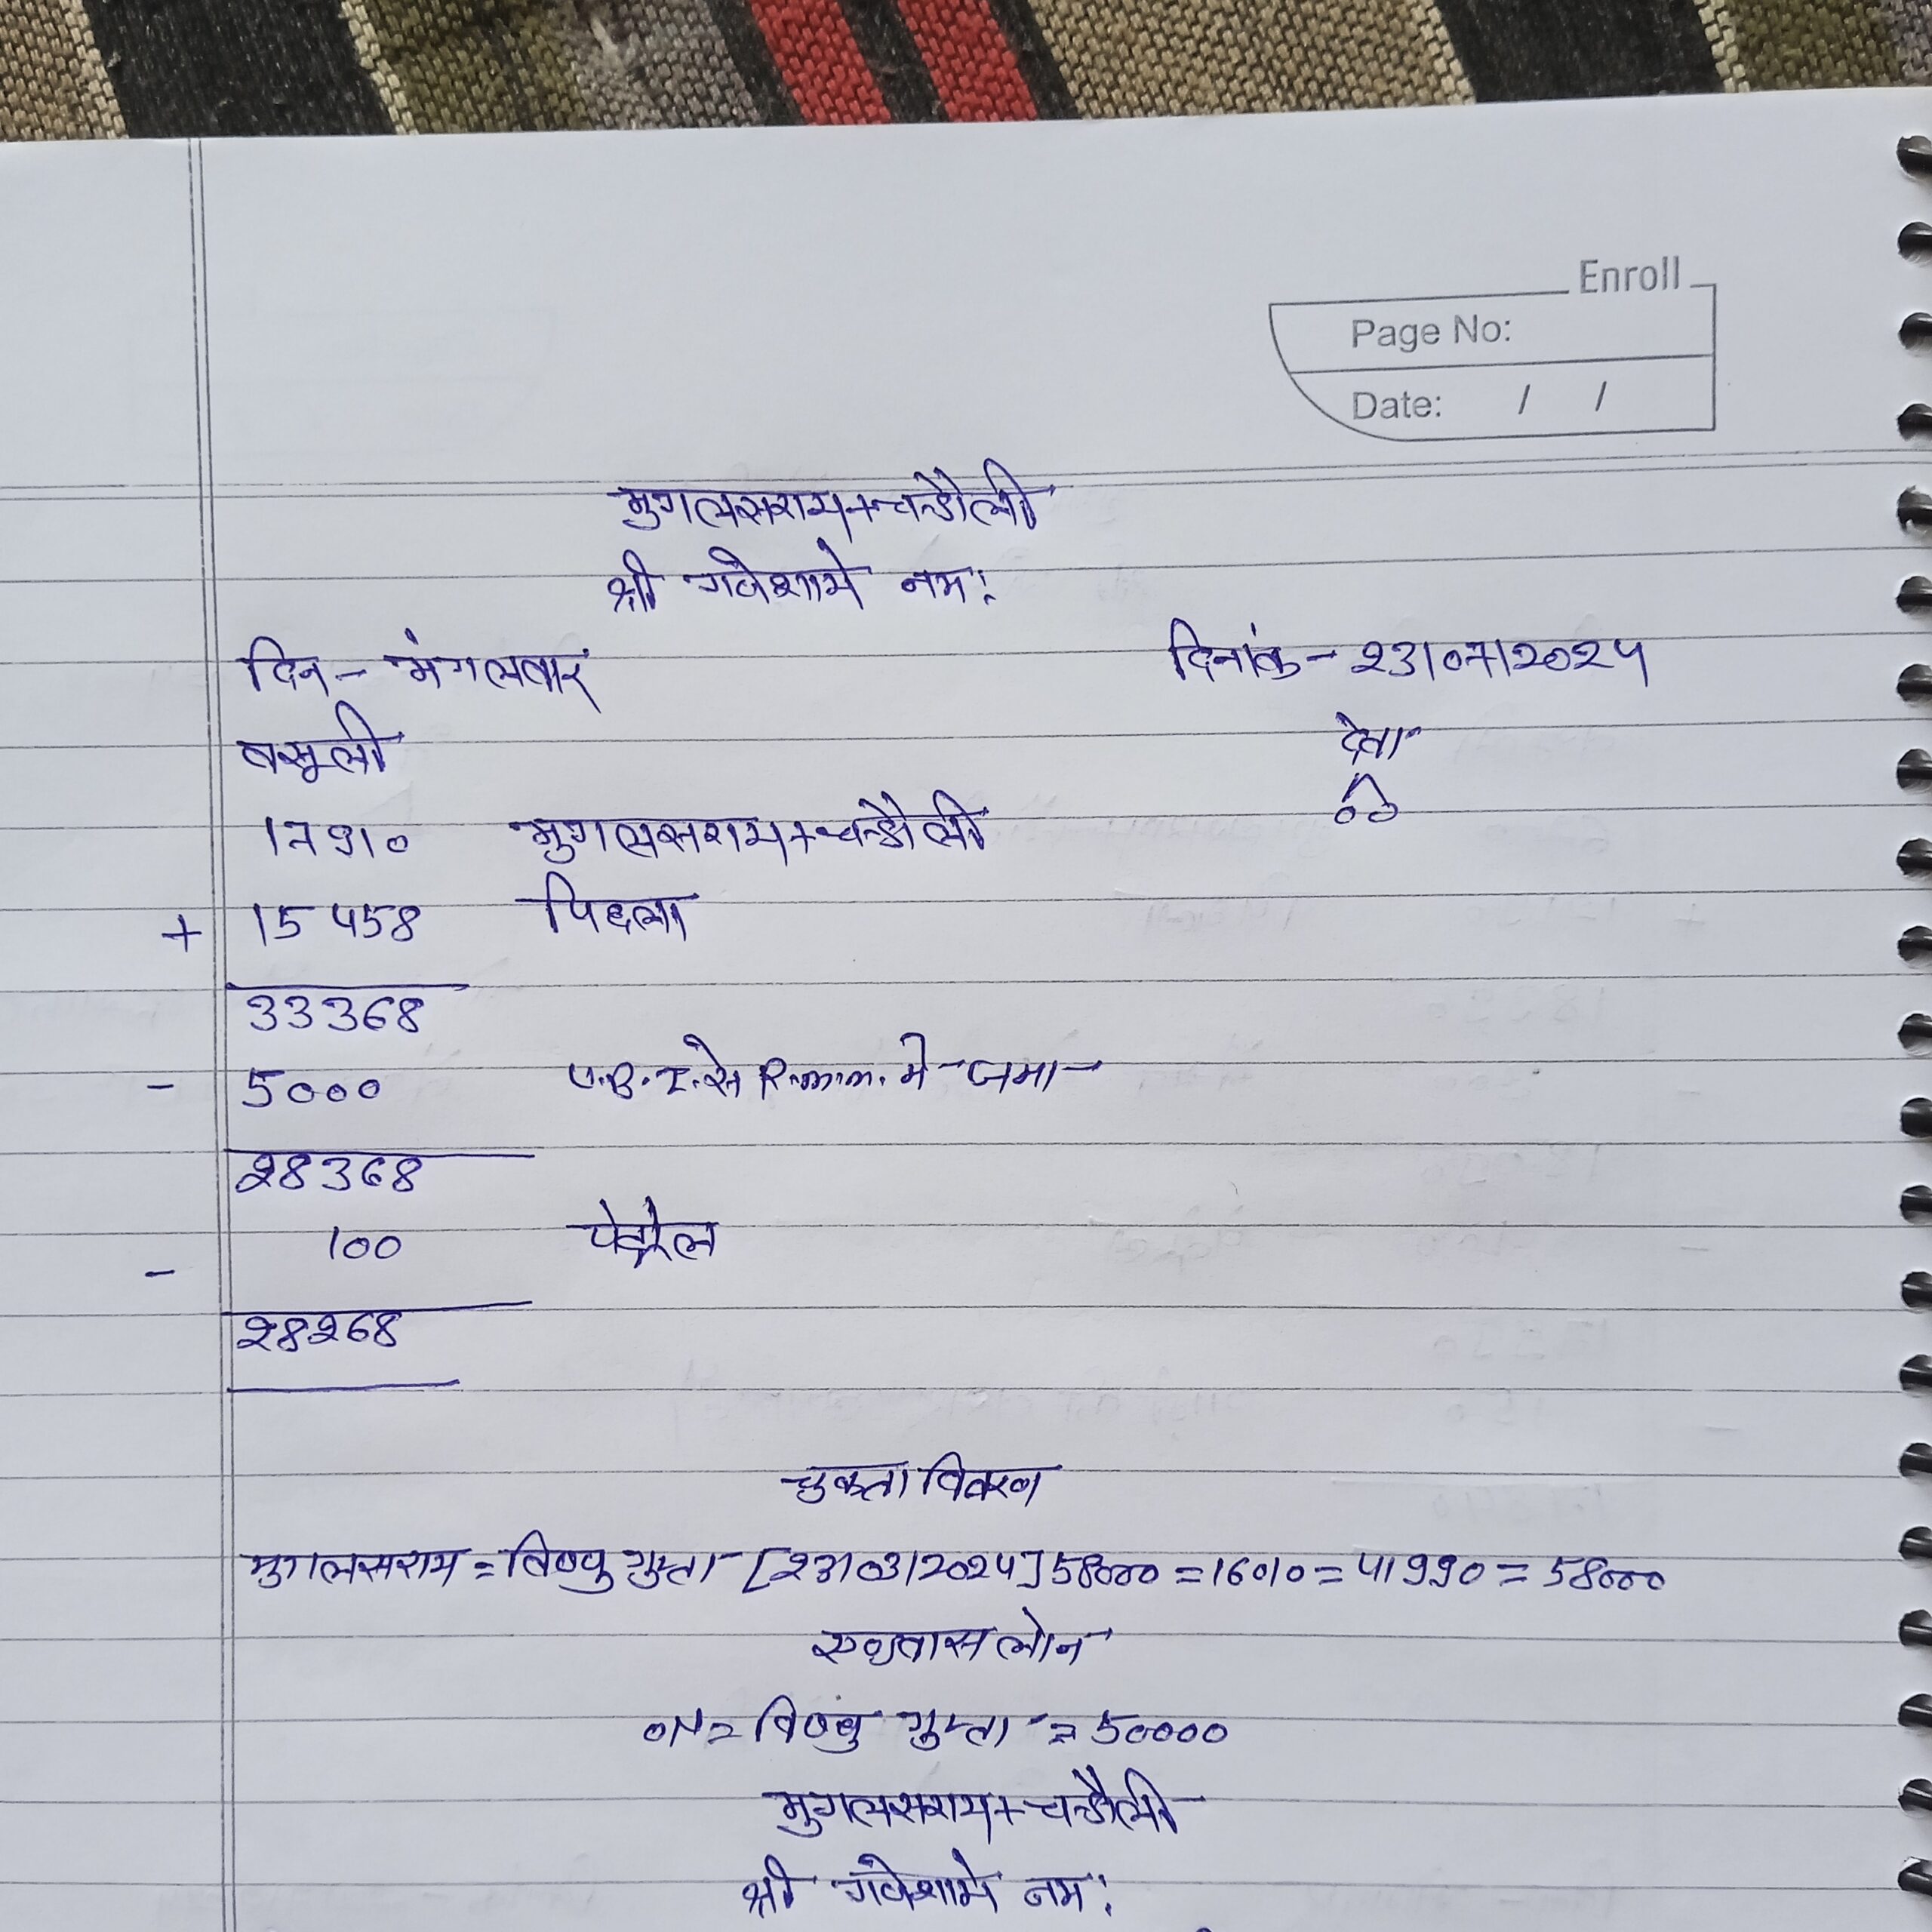 Enroll
Page No:
Date: / /
मुगलसराय+चन्दौली
श्री गणेशाये नमः
दिन - मंगलवार दिनांक - 23/07/2024
वसूली देना
17910 मुगलसराय+चन्दौली 00
+ 15458 पिछला
33368
- 5000 U.B.I. से R.m.m. मे जमा
28368
- 100 पेट्रोल
28268
चुकता विवरण
मुगलसराय = विष्णु गुप्ता [23/03/2024] 58000 = 16010 = 41990 = 58000
लोन
ON = विष्णु गुप्ता = 50000
मुगलसराय+चन्दौली
श्री गणेशाये नमः